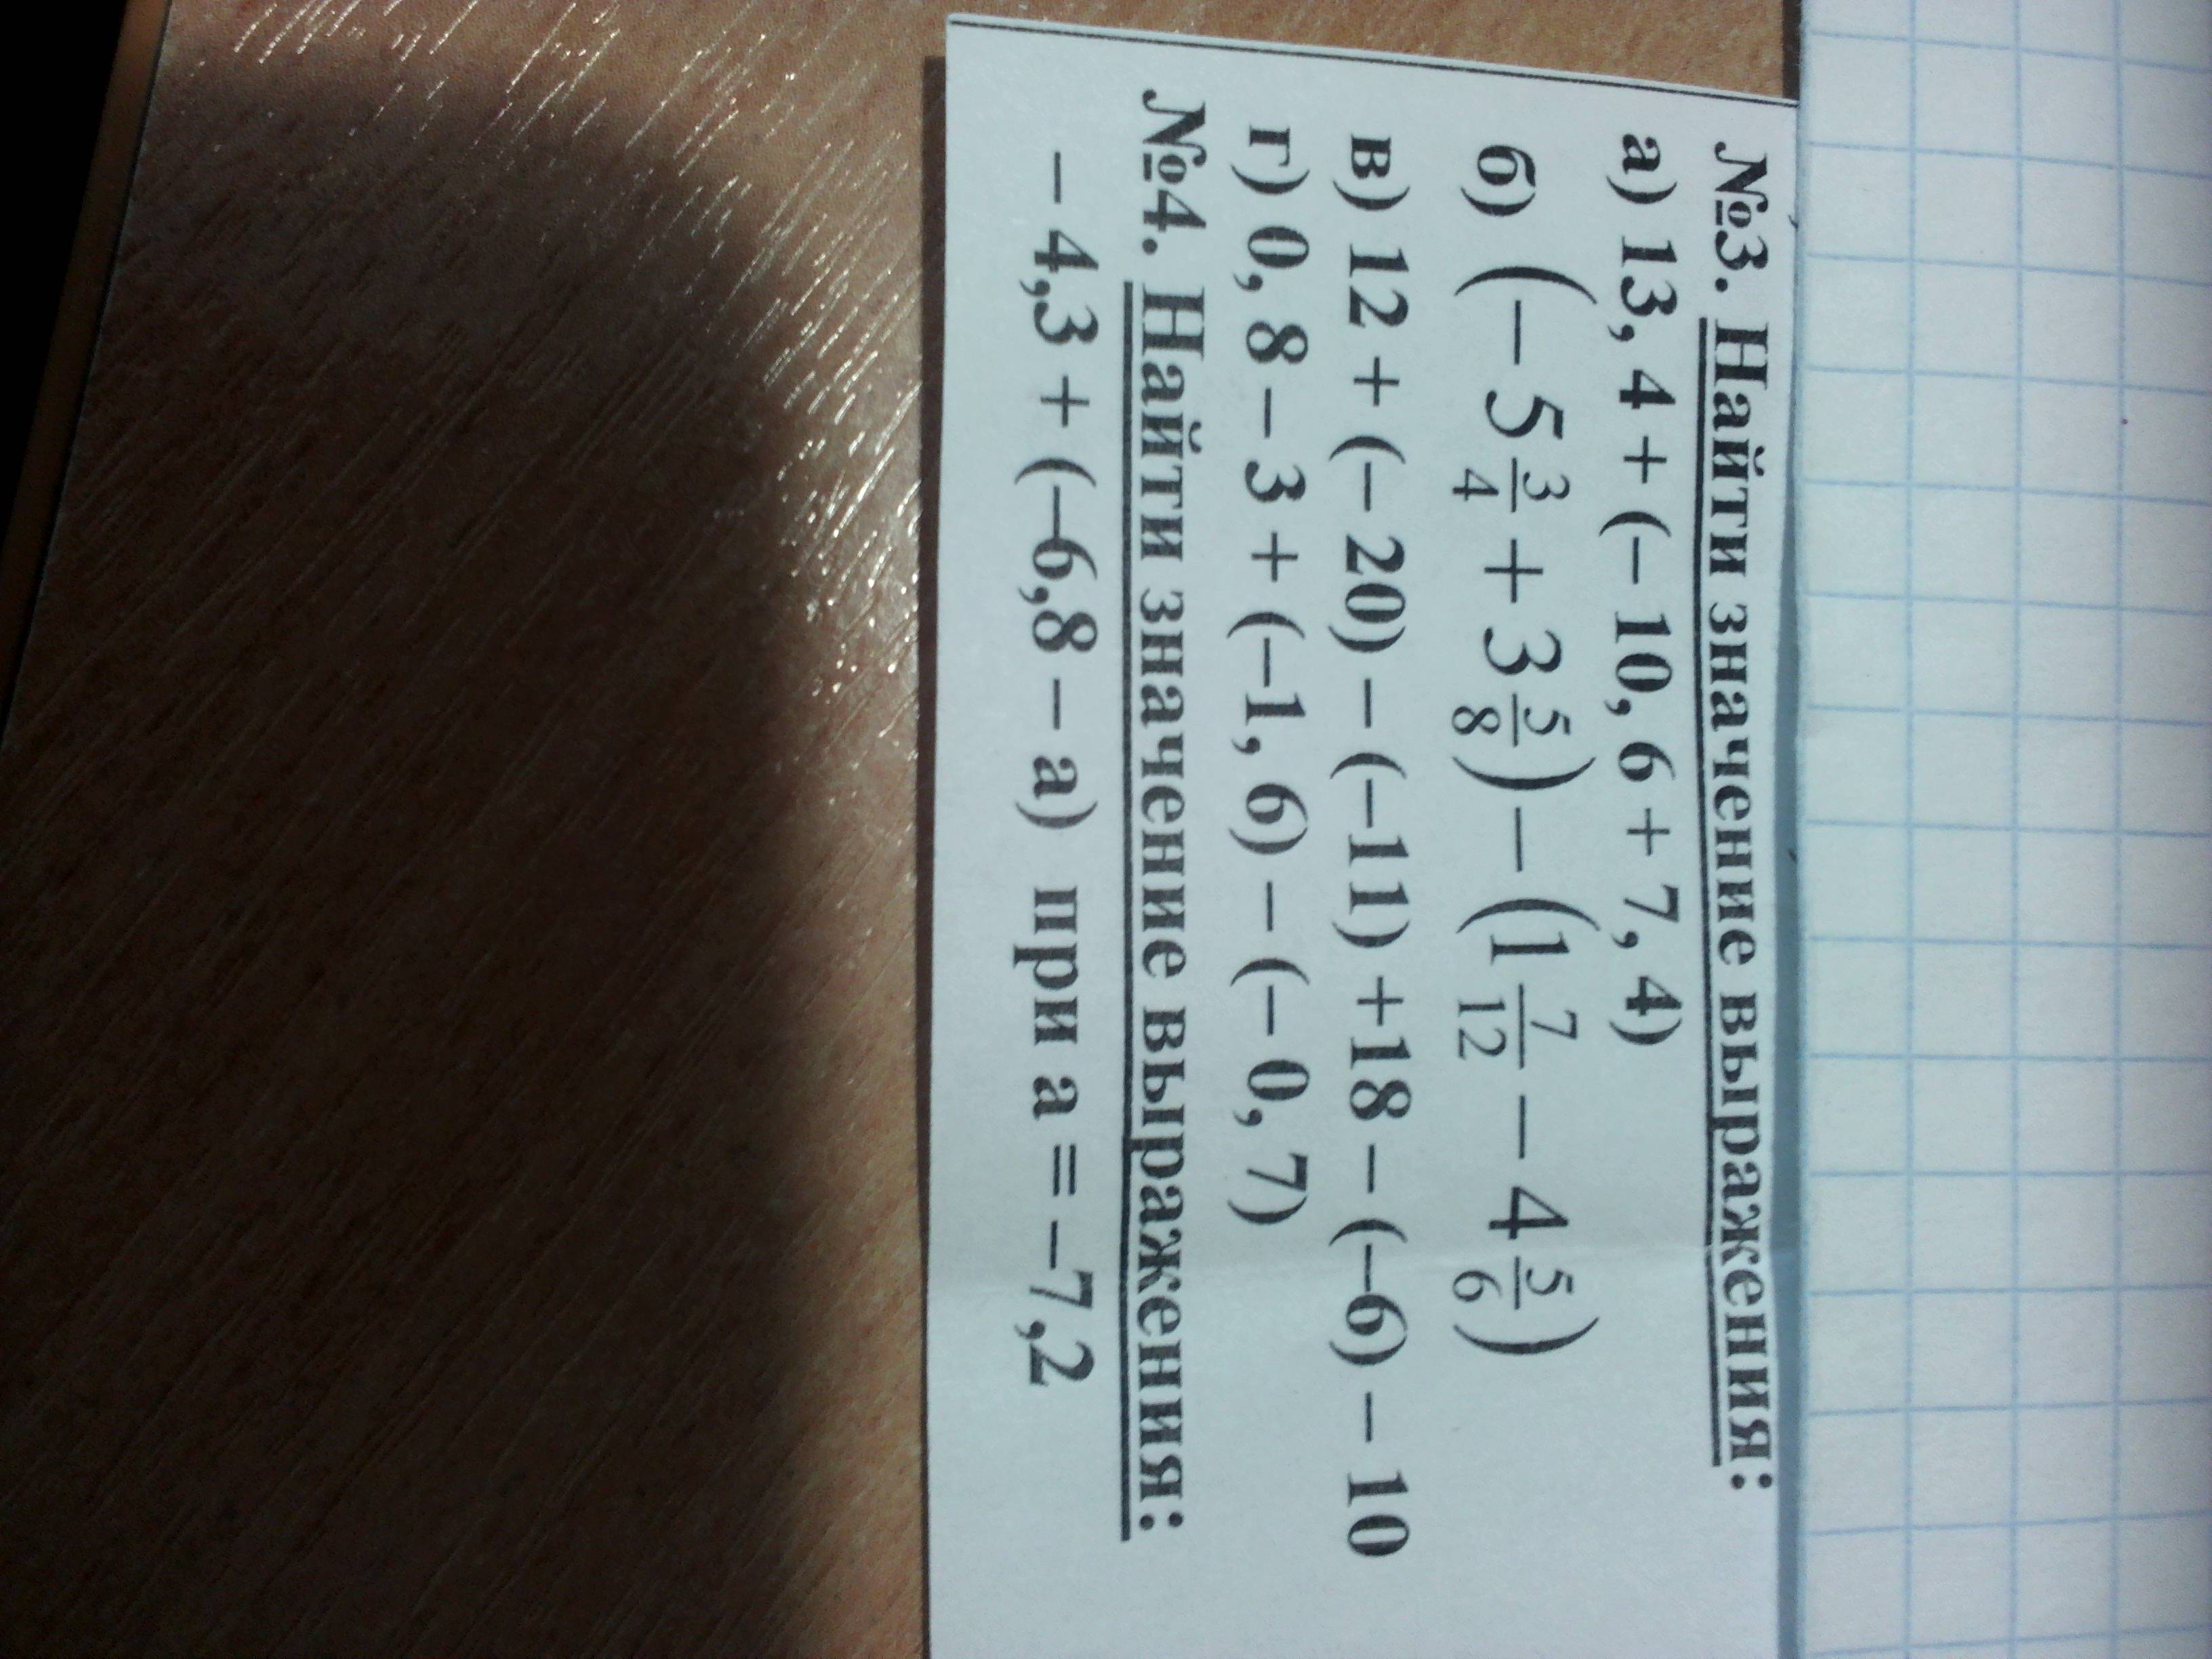 №3. Найти значение выражения:
а) 13, 4 + (– 10, 6 + 7, 4)
б) (– 5 3/4 + 3 5/8) – (1 7/12 – 4 5/6)
в) 12 + (– 20) – (–11) +18 – (–6) – 10
г) 0, 8 – 3 + (–1, 6) – (– 0, 7)
№4. Найти значение выражения:
– 4,3 + (–6,8 – а) при а = –7,2